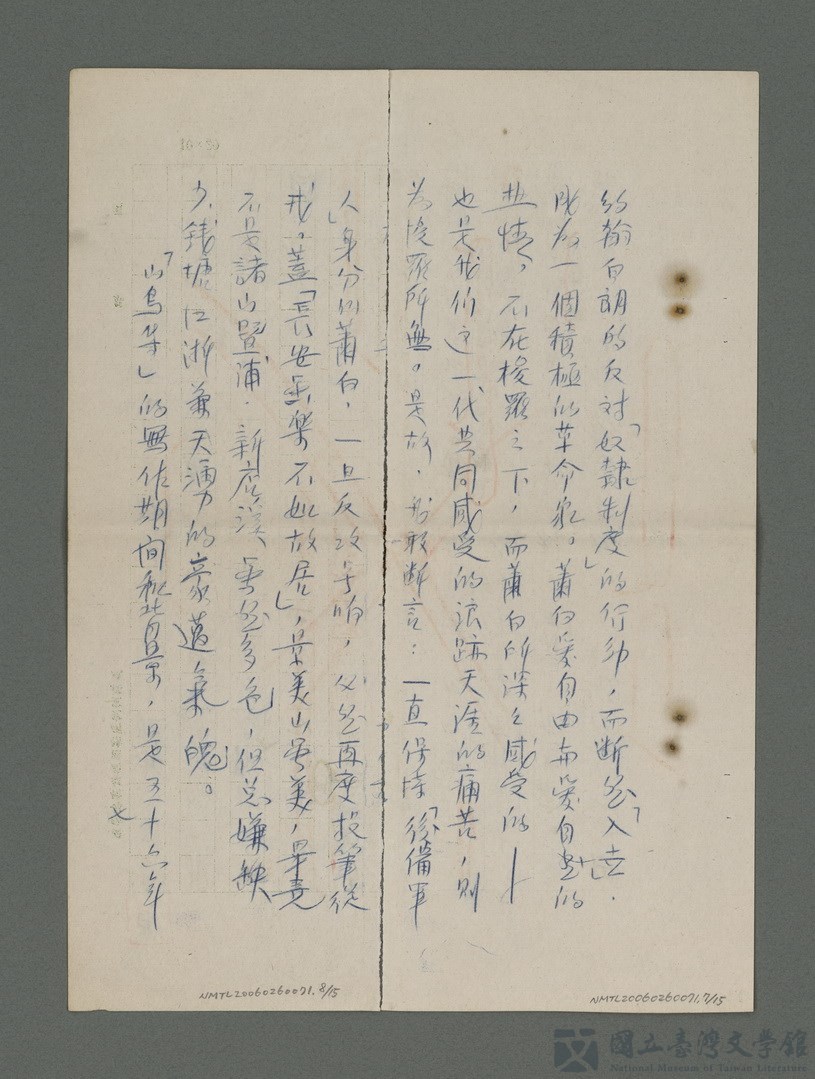 約翰白朗的反對「奴隸制度」的行動,而斷然「入世」.
成為一個積極的革命家。蕭白愛自由與愛自然的
熱情,不在梭羅之下,而蕭白所深深感受的——
也是我們這一代共同感受的浪跡天涯的痛苦,則
為梭羅所無。是故,我敢斷言:一直保持「後備軍
人」身分的蕭白,一旦反攻号响,必然再度投筆從
戎。蓋「長安雖樂不如故居」,景美山雖美,畢竟
不是諸山暨浦.新店溪、雖然多色,但总嫌缺
少錢塘江浙兼天湧的豪邁氣魄。
「山鳥集」的無佐期間和背景,是五十六年
NMTL20060260071.8/15
NMTL20060260071.7/15
國立臺灣文學館
National Museum of Taiwan Literature